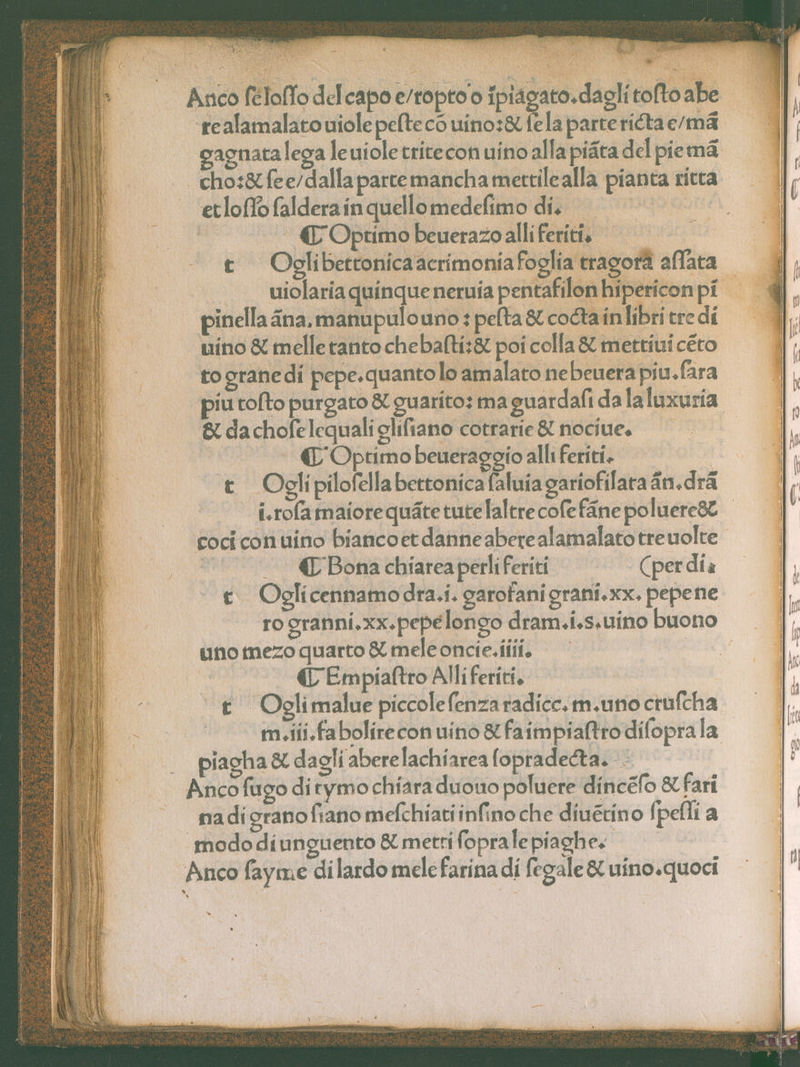 Anco ſeloſſo del capo e/ropto o īpiagato.dagli toſto abe
re alamalato uiole peſte cō uino:& ſe la parte ricta e/mā
gagnata lega le uiole trite con uino alla piāta del pie mā
cho:& ſe e/dalla parte mancha mettile alla pianta ritta
et loſſo ſaldera in quello medeſimo di.
⸿ Optimo beuerazo alli feriti.
t Ogli bettonica acrimonia foglia tragorā aſſata
uiolaria quinque neruia pentafilon hipericon pi
pinella āna.manupulo uno : peſta & cocta in libri tre di
uino & melle tanto che baſti:& poi colla & mettiui cēto
to grane di pepe.quanto lo amalato ne beuera piu.ſara
piu toſto purgato & guarito: ma guardaſi da la luxuria
& da choſe lequali gliſiano cotrarie & nociue.
⸿ Optimo beueraggio alli feriti.
t Ogli piloſella bettonica ſaluia gariofilata ān.drā
i.roſa maiore quāte tute laltre coſe fāne poluere&
coci con uino bianco et danne abere alamalato tre uolte
⸿ Bona chiarea perli feriti (per di.
t Ogli cennamo dra.i. garofani grani.xx. pepe ne
ro granni.xx.pepe longo dram.i.s.uino buono
uno mezo quarto & mele oncie.iiii.
⸿ Empiaſtro Alli feriti.
t Ogli malue piccole ſenza radicc.m.uno cruſcha
m.iii.fa bolire con uino & fa impiaſtro diſopra la
piagha & dagli abere lachiarea ſopradecta.
Anco ſugo di tymo chiara duouo poluere dincēſo & fari
na di grano ſiano meſchiati infino che diuētino ſpeſſi a
modo di unguento & metti ſopra le piaghe.
Anco ſayme di lardo mele farina di ſegale & uino.quoci